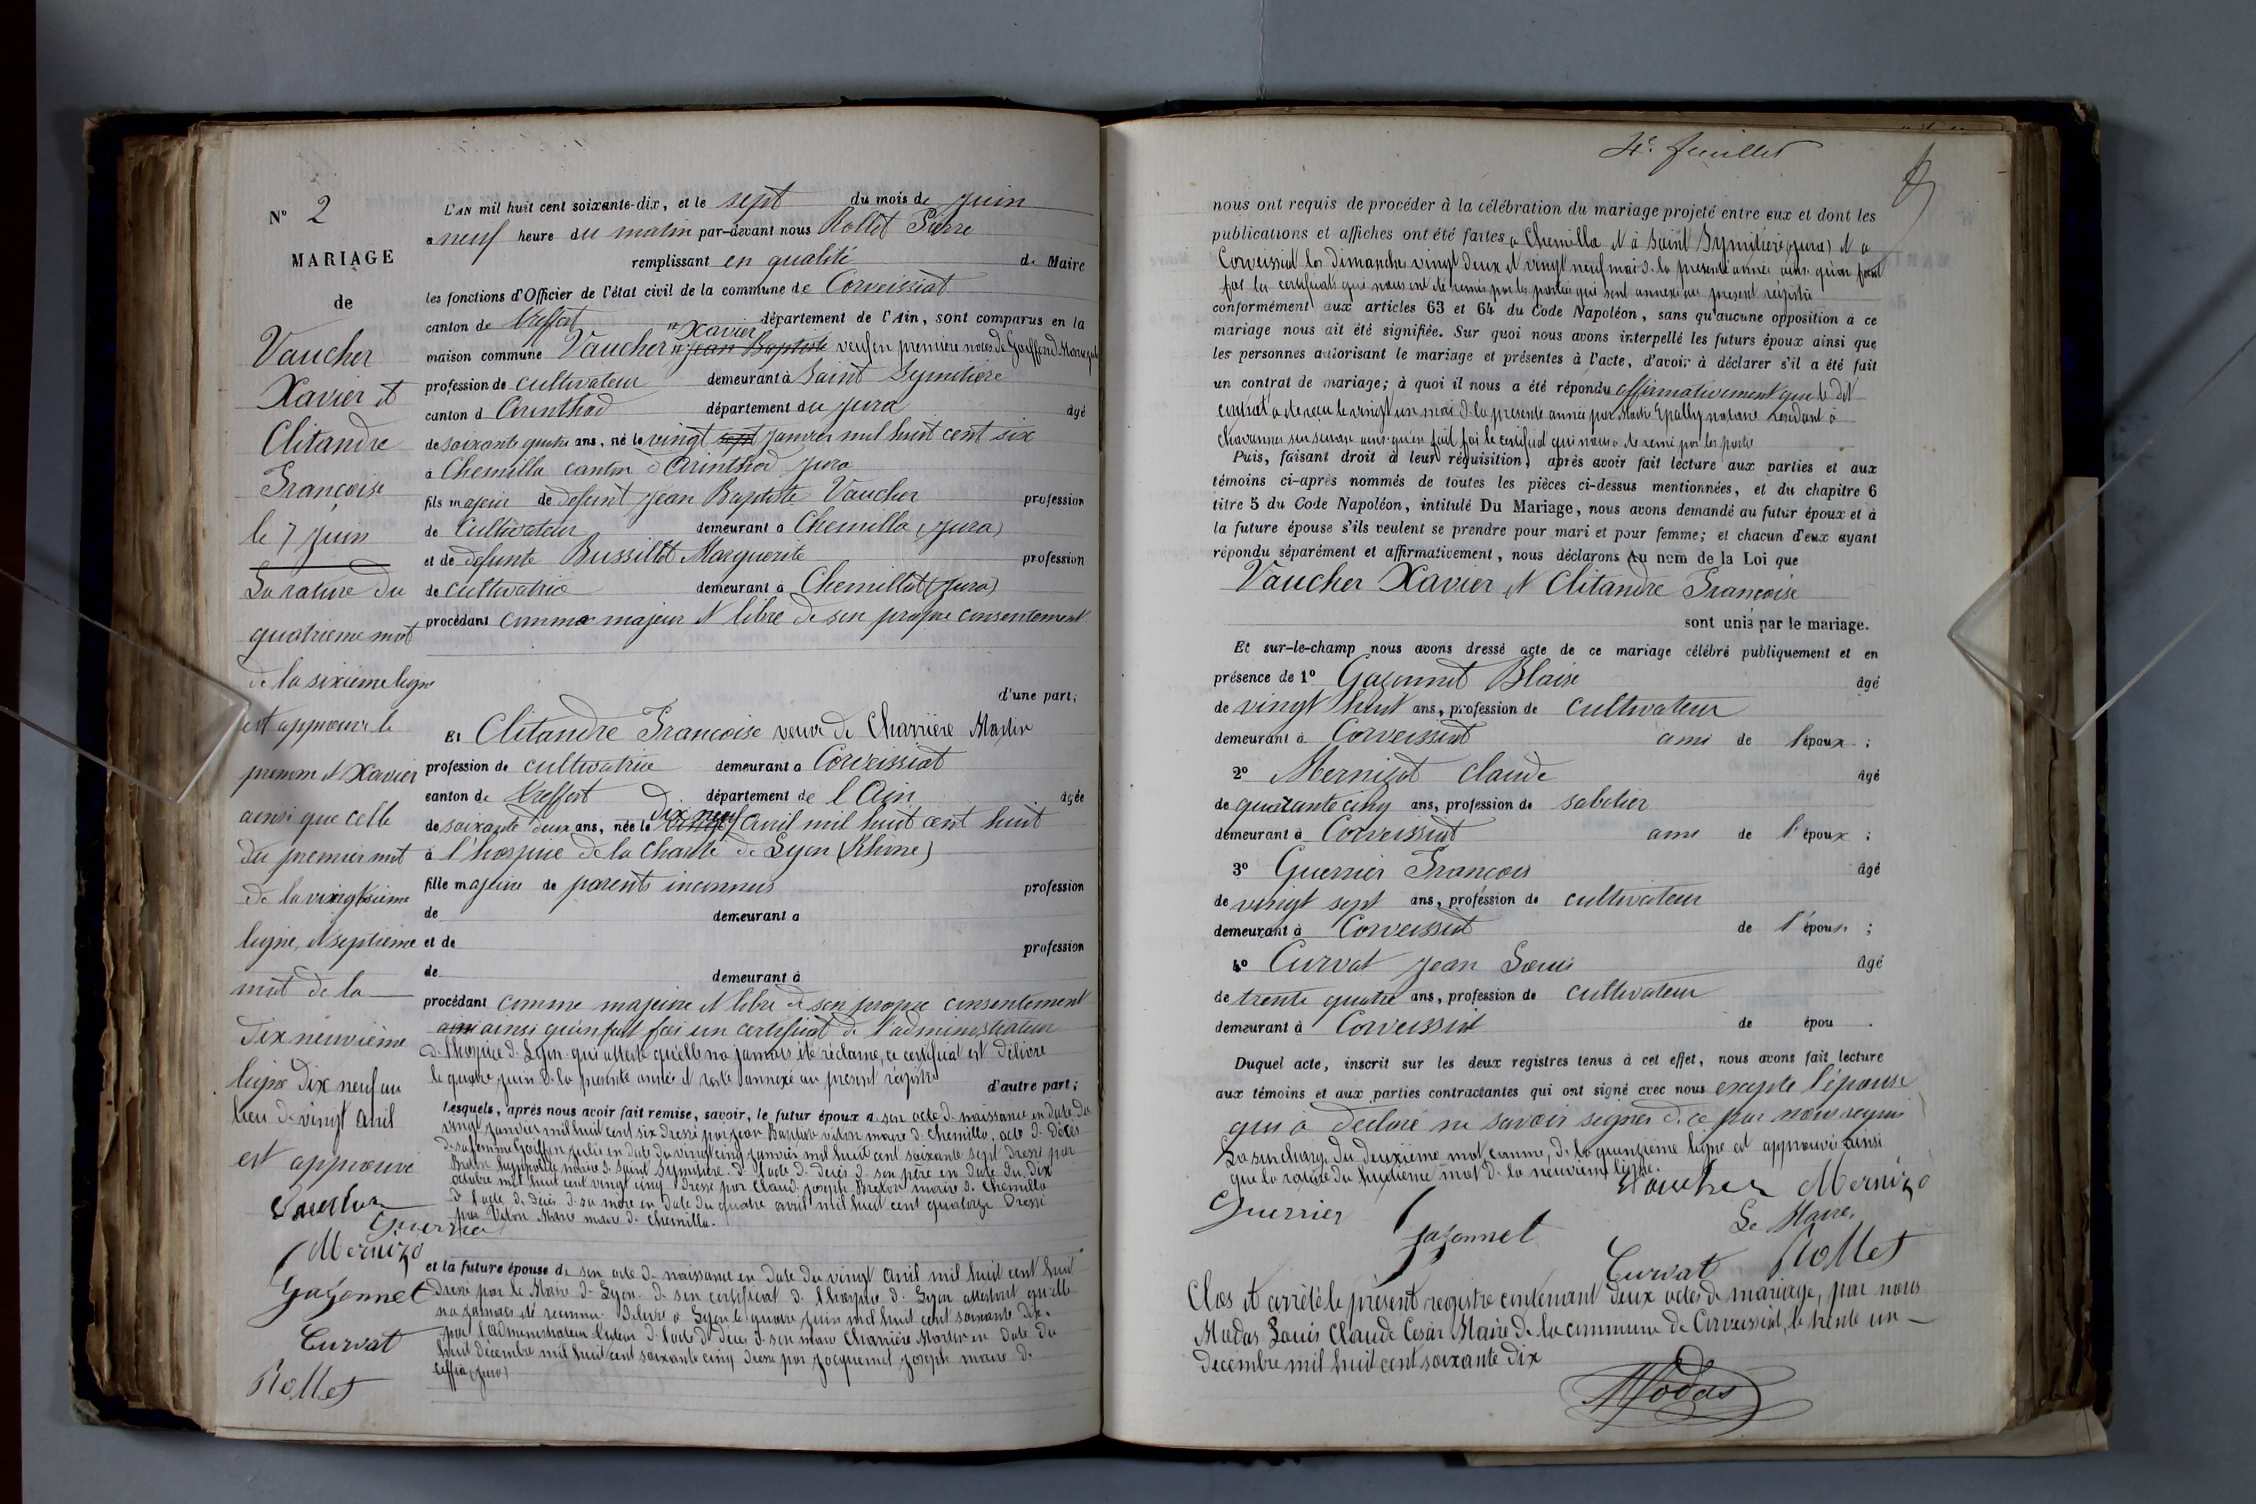 N° 2
MARIAGE
de
Vaucher
Xavier et
Clitandre
Françoise
le 7 juin
La rature du
quatrieme mot
de la sixieme ligne
est approuvé le
prenom et Xavier
ainsi que celle
du premier mot
de la vingtsieme
ligne, et septieme
mot de la
dix neuvième
ligne dix neuf au
lieu de vingt avril
est approuvé
Vaucher
Guerrier
Mernizo
Gazonnet
Curvat
Rollet
L'AN mil huit cent soixante-dix, et le sept du mois de juin
a neuf heure du matin par-devant nous Rollet Pierre
remplissant en qualité de Maire
les fonctions d'Officier de l'état civil de la commune de Corveissiat
canton de Treffort département de l'Ain, sont comparus en la
maison commune Vaucher Xavier Jean Baptiste veuf en premiere noces de
profession de cultivateur demeurant à Saint Symetiere
canton d Arinthod département du jura âgé
de soixante quatre ans, né le vingt sept janvier mil huit cent six
à Chemilla canton d'Arinthod jura
fils majeur de defunt Jean Baptiste Vaucher profession
de Cultivateur demeurant à Chemilla (jura)
et de defunte Bussillet Marguerite profession
de cultivatrice demeurant à Chemillat (jura)
procédant comme majeur et libre de son propre consentement
d'une part;
Et Clitandre Françoise veuve de Charrière Martin
profession de cultivatrice demeurant a Corveissiat
canton de Treffort département de l'Ain âgée
de soixante deux ans, née le dix neuf vingt avril mil huit cent huit
à l'hospice de la charité de Lyon (Rhone)
fille majeure de parents inconnus profession
de demeurant a
et de profession
de demeurant à
procédant comme majeure et libre de son propre consentement
ainsi ainsi qu'en fait foi un certificat de l'administration
de l'hospice de Lyon qui atteste qu'elle na jamais été réclamé, ce certificat est délivré
le quatre juin de la presente année et reste annexé au present régistre d'autre part;
Lesquels, après nous avoir fait remise, savoir, le futur époux a son acte de naissance en date du
vingt janvier mil huit cent six dressé par jean Baptiste vidon maire de Chemilla, acte de décès
de sa femme julie en date du vingt cinq janvier mil huit cent soixante sept dressé par
hyppolite maire de Saint Symetiere de l'acte de décès de son père en date du dix
octobre mil huit cent vingt cinq dressé par Claude joseph maire de Chemilla
de l'acte de décès de sa mère en date du quatre avril mil huit cent quatorze dressé
par Vidon Marie maire de Chemilla.
et la future épouse de son acte de naissance en date du vingt avril mil huit cent huit
dressé par le Maire de Lyon de son certificat de l'hospice de Lyon attestant qu'elle
na jamais été reconnue délivré a Lyon le quatre juin mil huit cent soixante dix.
par l'administrateur tuteur de l'acte de décès de son mari Charrière Martin en date du
huit décembre mil huit cent soixante cinq dressé par jacquemet joseph maire de
(jura)
4e feuillet
nous ont requis de procéder à la célébration du mariage projeté entre eux et dont les
publications et affiches ont été faites a Chemilla et à Saint Symetiere (jura) et a
Corveissiat les dimanches vingt deux et vingt neuf mai de la presente année ainsi qu'en font
foi les certificats qui nous ont été remis par les parties qui sont annexés au present régistre
conformément aux articles 63 et 64 du Code Napoléon, sans qu'aucune opposition à ce
mariage nous ait été signifiée. Sur quoi nous avons interpellé les futurs époux ainsi que
les personnes autorisant le mariage et présentes à l'acte, d'avoir à déclarer s'il a été fait
un contrat de mariage; à quoi il nous a été répondu affirmativement que le dit
contrat a été reçu le vingt un mai de la presente année par Maitre Epailly notaire residant à
chavannes sur suran ainsi qu'en fait foi le certificat qui nous a été remi par les partis
Puis, faisant droit à leur réquisition, après avoir fait lecture aux parties et aux
témoins ci-après nommés de toutes les pièces ci-dessus mentionnées, et du chapitre 6
titre 5 du Code Napoléon, intitulé Du Mariage, nous avons demandé au futur époux et à
la future épouse s'ils veulent se prendre pour mari et pour femme; et chacun d'eux ayant
répondu séparément et affirmativement, nous déclarons Au nom de la Loi que
Vaucher Xavier et Clitandre Françoise
sont unis par le mariage.
Et sur-le-champ nous avons dressé acte de ce mariage célébré publiquement et en
présence de 1° Gazonnet Blaise âgé
de vingt huit ans, profession de cultivateur
demeurant à Corveissiat ami de l'époux ;
2° Mernizot Claude âgé
de quarante cinq ans, profession de sabotier
demeurant à Corveissiat ami de l'époux ;
3° Guerrier François âgé
de vingt sept ans, profession de cultivateur
demeurant à Corveissiat de l'épouse ;
4° Curvat Jean Louis âgé
de trente quatre ans, profession de cultivateur
demeurant à Corveissiat de épou .
Duquel acte, inscrit sur les deux registres tenus à cet effet, nous avons fait lecture
aux témoins et aux parties contractantes qui ont signé avec nous excepté l'épouse
qui a declaré ne savoir signer de ce par nous requis
La surcharge du deuxième mot comme, de la quinzième ligne est approuvé ainsi
que la rature du huitième mot de la neuvième ligne.
Vaucher Mernizo
Guerrier Gazonnet Le Maire,
Curvat Rollet
Clos et arrêté le présent registre contenant deux actes de mariage, par nous
Modas Louis Claude César Maire de la commune de Corveissiat, le trente un
decembre mil huit cent soixante dix
Modas